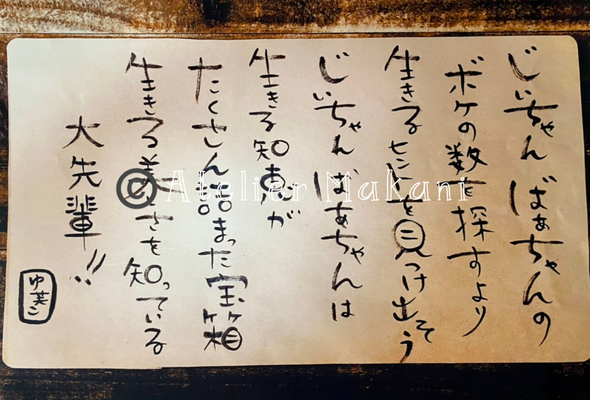 じいちゃん ばぁちゃんの
ボケの数を探すより
生きるヒントを見つけ出そう
じいちゃん ばぁちゃんは
生きる知恵が
たくさん詰まった宝箱
生きる美さを知っている
大先輩!!
@ Atelier Makani